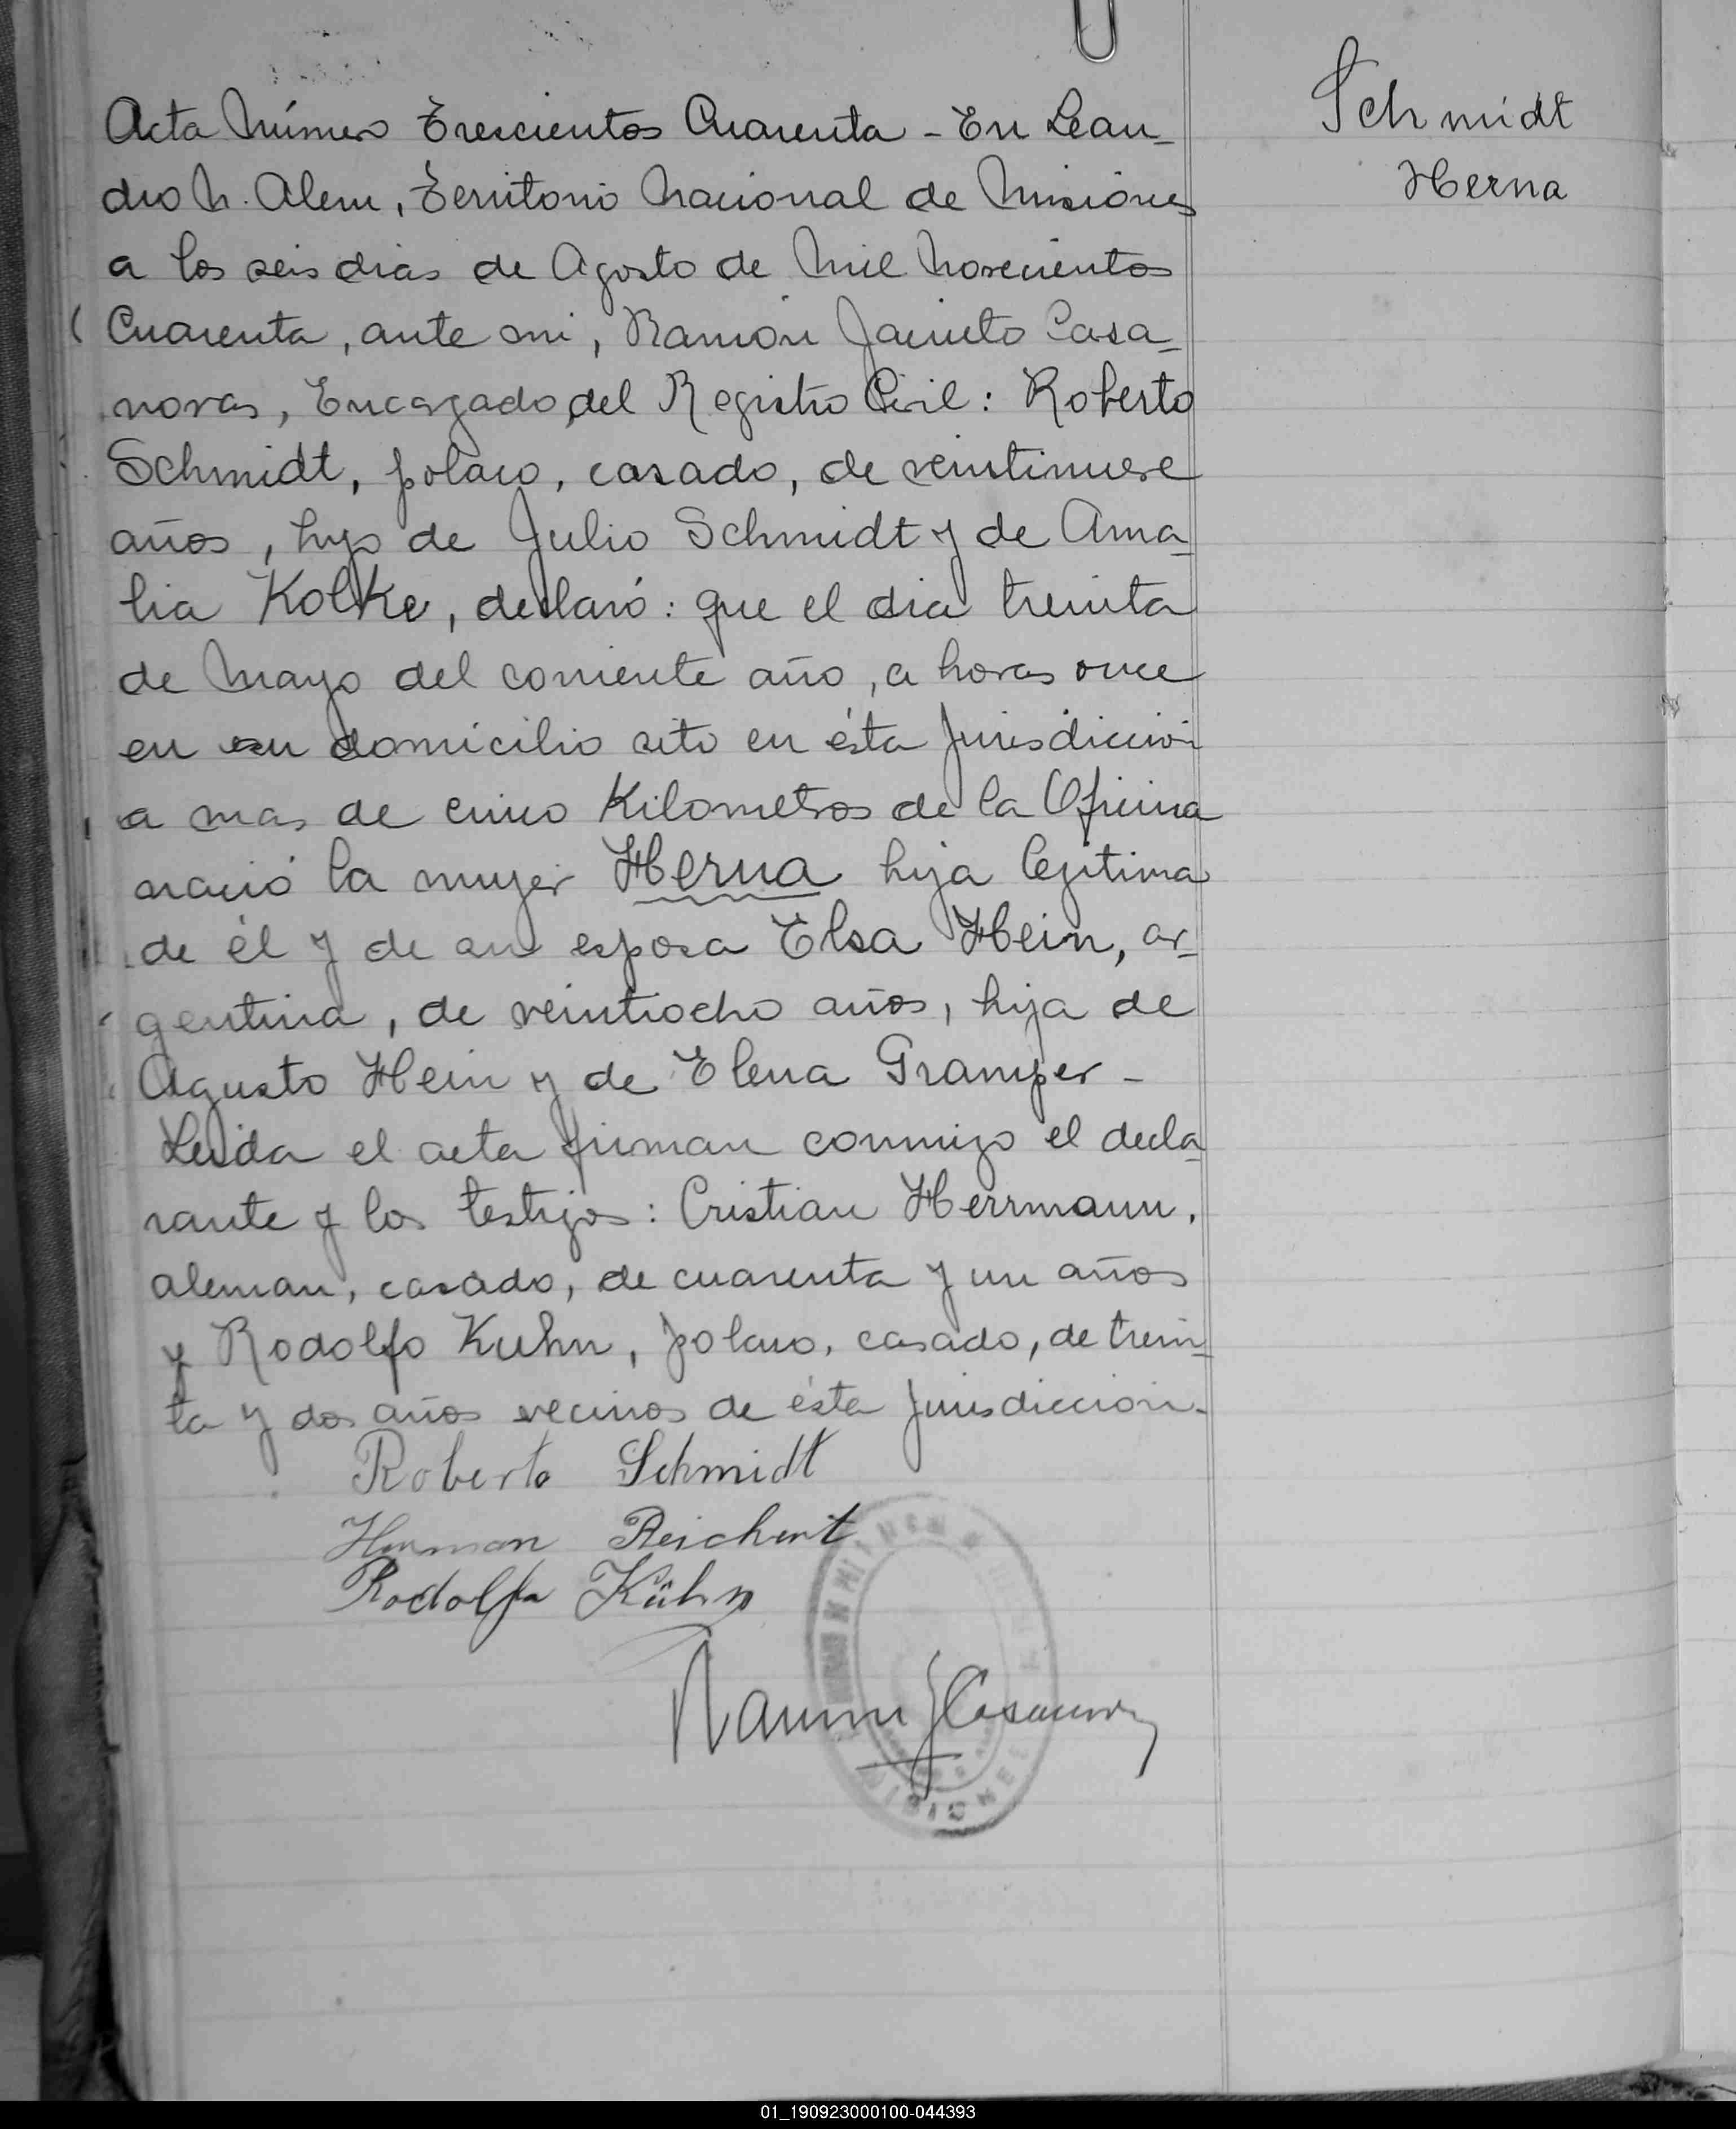 Schmidt
Herna
Acta Número Trescientos Cuarenta - En Lean-
dro N. Alem, Territorio Nacional de Misiones
a los seis dias de Agosto de Mil Novecientos
Cuarenta, ante mi, Ramón Jacinto Casa-
novas, Encargado del Registro Civil: Roberto
Schmidt, polaco, casado, de veintinueve
años, hijo de Julio Schmidt y de Ama-
lia Kolke, declaró: que el dia treinta
de Mayo del corriente año, a horas once
en su domicilio sito en ésta Jurisdicción
a mas de cinco Kilometros de la Oficina
nació la mujer Herna hija legitima
de él y de su esposa Elsa Hein, ar-
gentina, de veintiocho años, hija de
Agusto Hein y de Elena Gramper -
Leida el acta firman conmigo el decla-
rante y los testigos: Cristian Herrmann,
aleman, casado, de cuarenta y un años
y Rodolfo Kuhn, polaco, casado, de trein-
ta y dos años vecinos de ésta Jurisdicción.
Roberto Schmidt
Herman Reichert
Rodolfo Kühn
Ramon J Casanovas
01_190923000100-044393